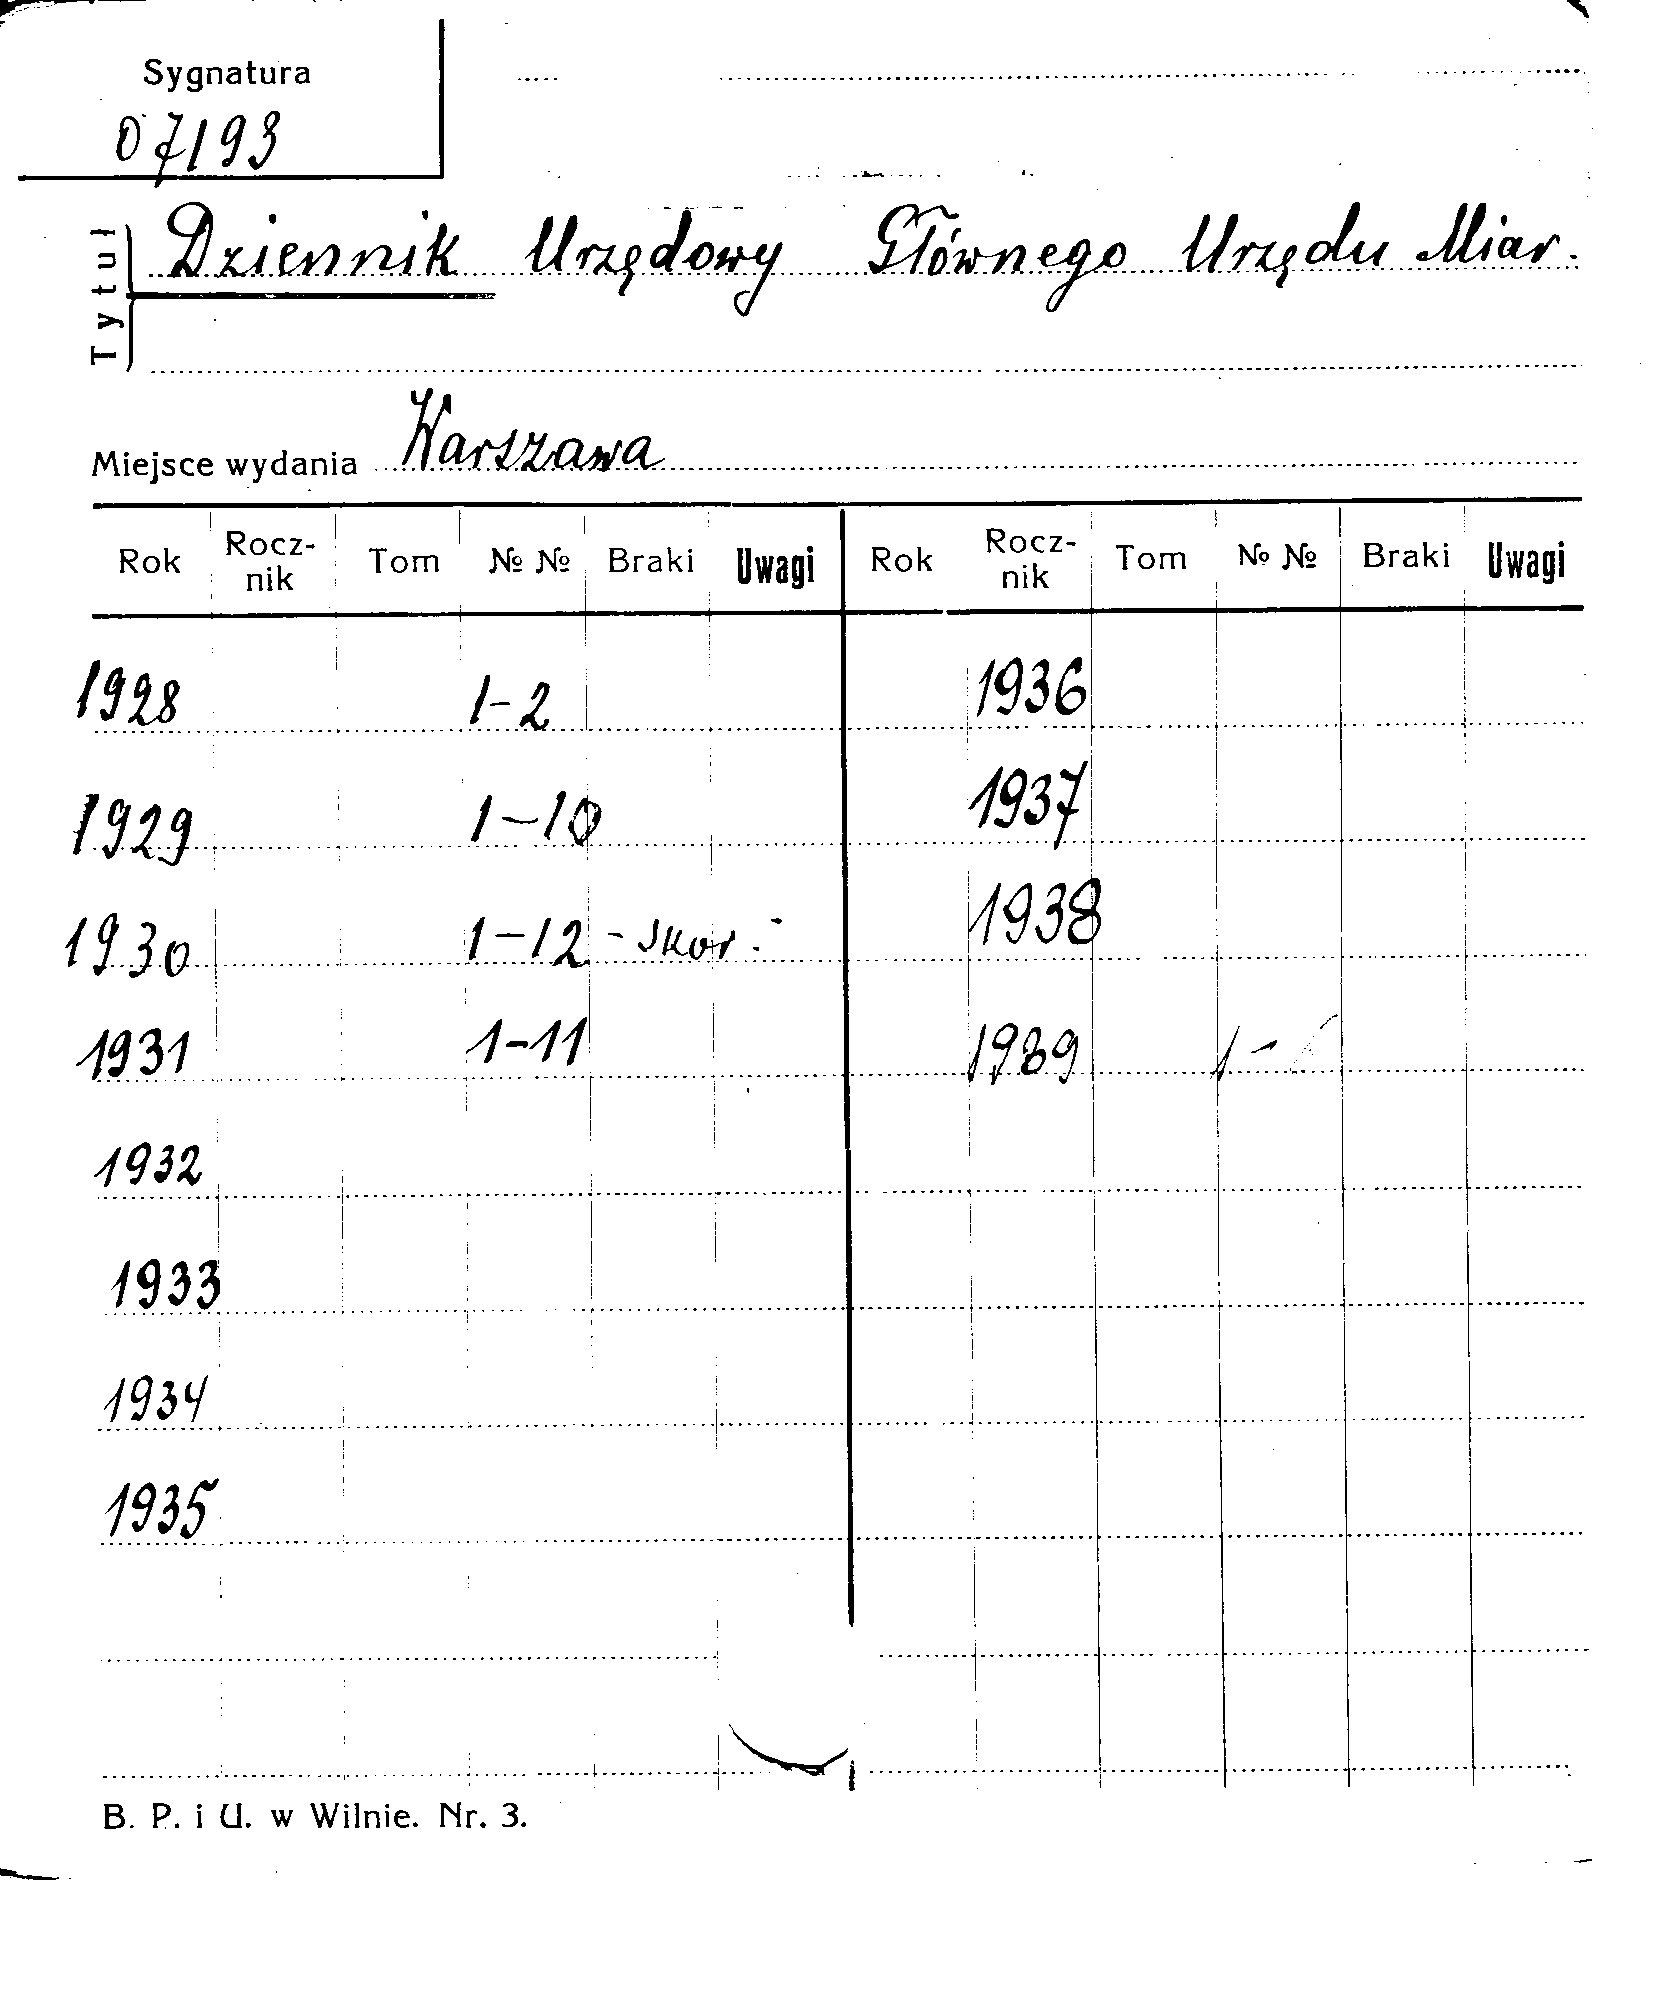 Sygnatura
07193
Tytuł
Dziennik Urzędowy Głównego Urzędu Miar.
Miejsce wydania Warszawa
Rok Rocz-nik Tom № № Braki Uwagi Rok Rocz-nik Tom № № Braki Uwagi
1928 1-2 1936
1929 1-10 1937
1930 1-12 - skor. 1938
1931 1-11 1939 1-
1932
1933
1934
1935
B. P. i U. w Wilnie. Nr. 3.